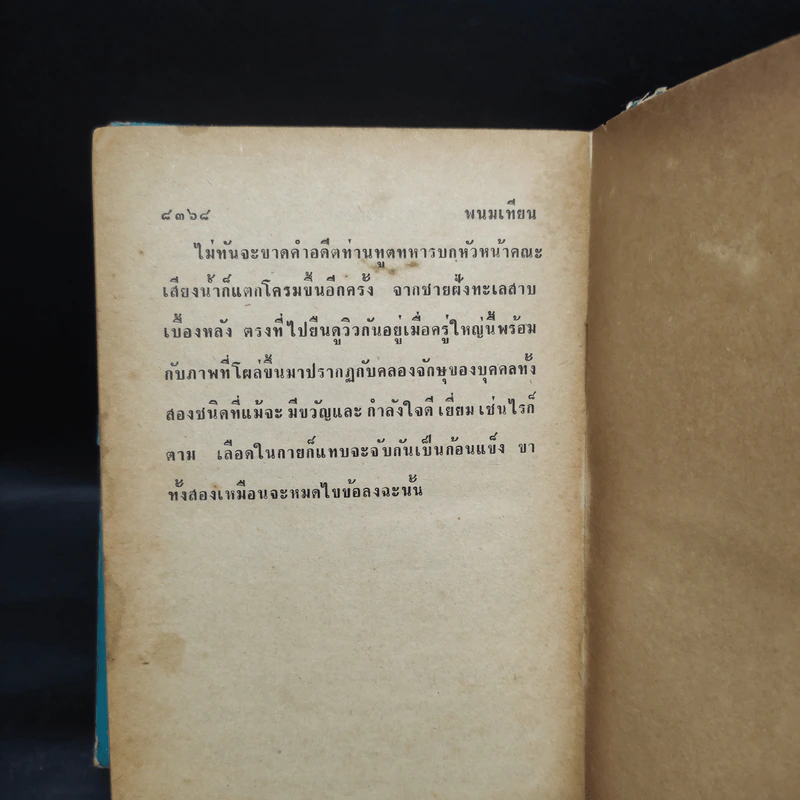 ๘๓๖๘ พนมเทียน
ไม่ทันจะขาดคำอดีตท่านทูตทหารบกหัวหน้าคณะ
เสียงน้ำก็แตกโครมขึ้นอีกครั้ง จากชายฝั่งทะเลสาบ
เบื้องหลัง ตรงที่ไปยืนดูวิวกันอยู่เมื่อครู่ใหญ่นี้พร้อม
กับภาพที่โผล่ขึ้นมาปรากฏกับคลองจักษุของบุคคลทั้ง
สองชนิดที่แม้จะ มีขวัญและ กำลังใจดี เยี่ยม เช่นไรก็
ตาม เลือดในกายก็แทบจะจับกันเป็นก้อนแข็ง ขา
ทั้งสองเหมือนจะหมดไขข้อลงฉะนั้น